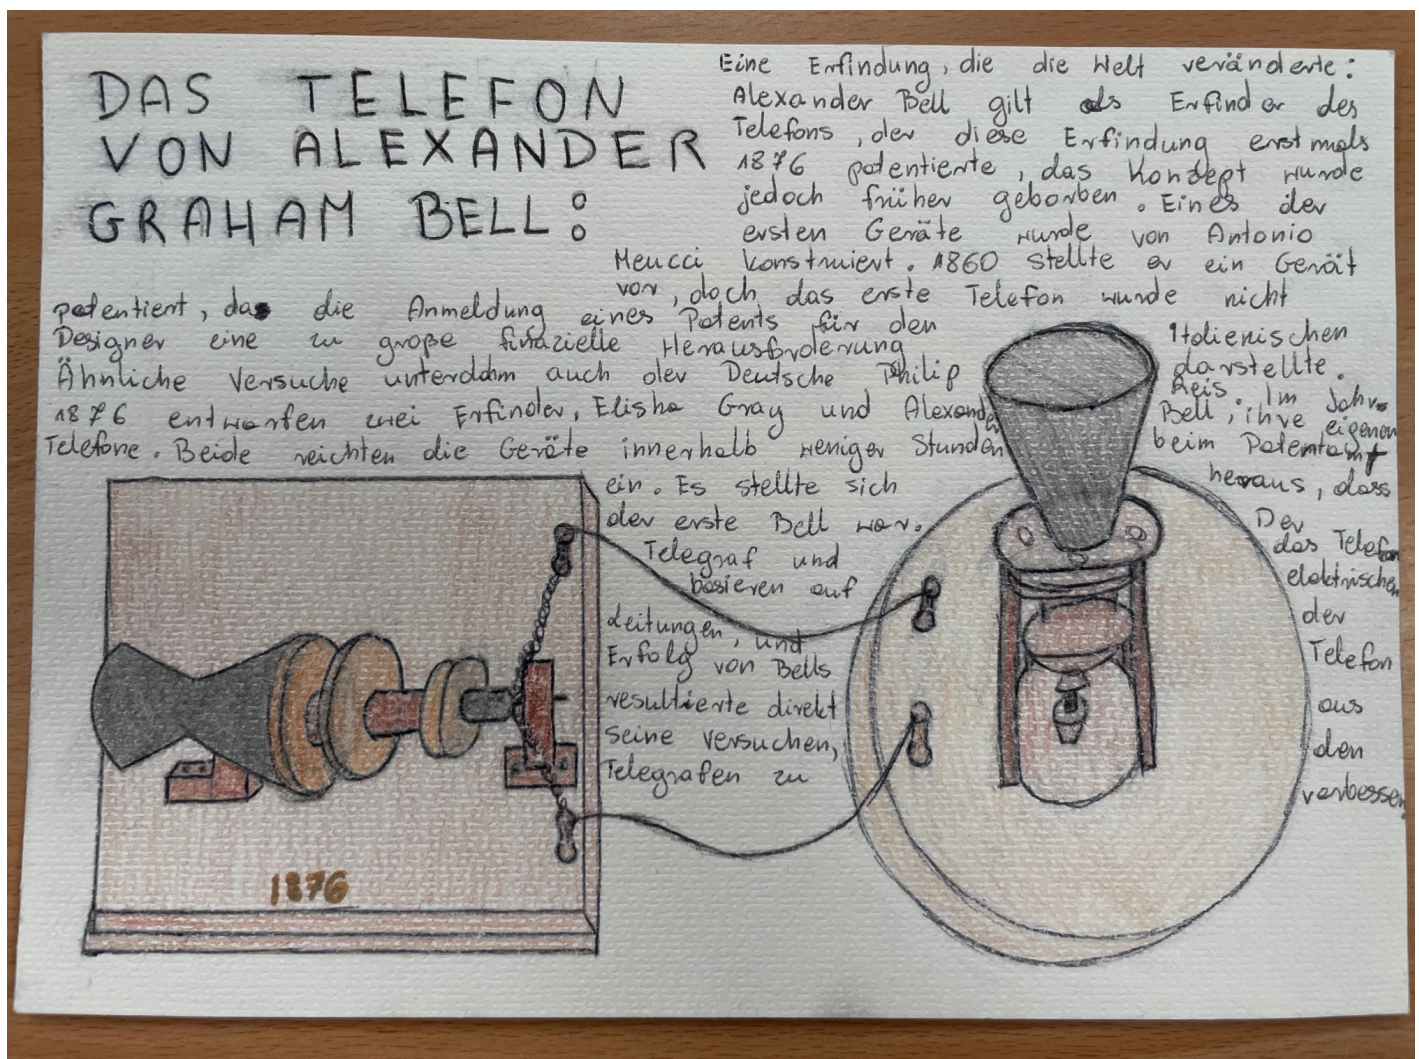 DAS TELEFON
VON ALEXANDER
GRAHAM BELL:
Eine Erfindung, die die Welt veränderte:
Alexander Bell gilt als Erfinder des
Telefons, der diese Erfindung erstmals
1876 patentierte, das Konzept wurde
jedoch früher geborben. Eines der
ersten Geräte wurde von Antonio
Meucci konstruiert. 1860 stellte er ein Gerät
vor, doch das erste Telefon wurde nicht
patentiert, das die Anmeldung eines Patents für den Italienischen
Designer eine zu große finazielle Herausforderung darstellte.
Ähnliche Versuche unterdahm auch der Deutsche Philip Reis. Im Jahre
1876 entwarfen zwei Erfinder, Elisha Gray und Alexander Bell, ihre eigenen
Telefone. Beide reichten die Geräte innerhalb weniger Stunden beim Patentamt
ein. Es stellte sich heraus, dass
der erste Bell war. Der
Telegraf und das Telefon
basieren auf elektrischen
Leitungen, und der
Erfolg von Bells Telefon
resultierte direkt aus
seine versuchen, den
Telegrafen zu verbessern
1876